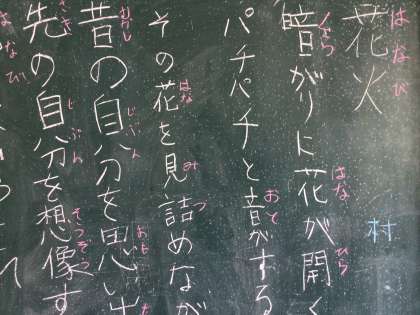 はなび
花火
村
くら はな ひら
暗がりに花が開く
おと
パチパチと音がする
はな み つ
その花を見詰めなが
むかし じぶん おも
昔の自分を思い出
さき じぶん そうぞう
先の自分を想像す